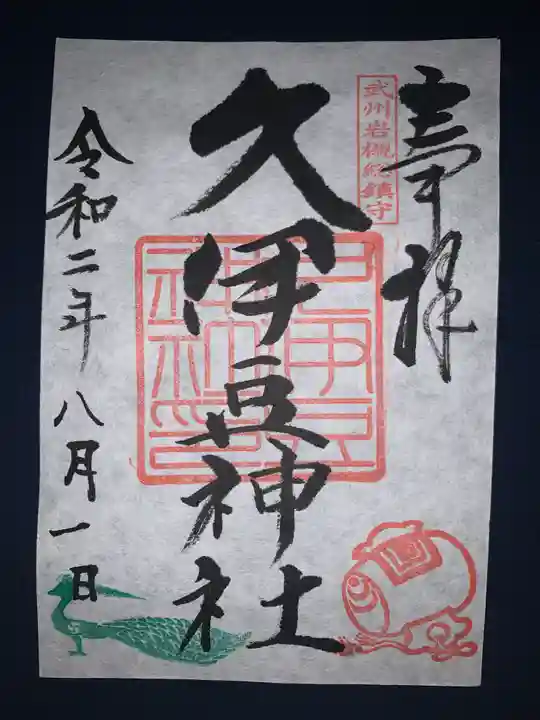 奉拝
武州岩槻総鎮守
久伊豆神社
令和二年 八月一日